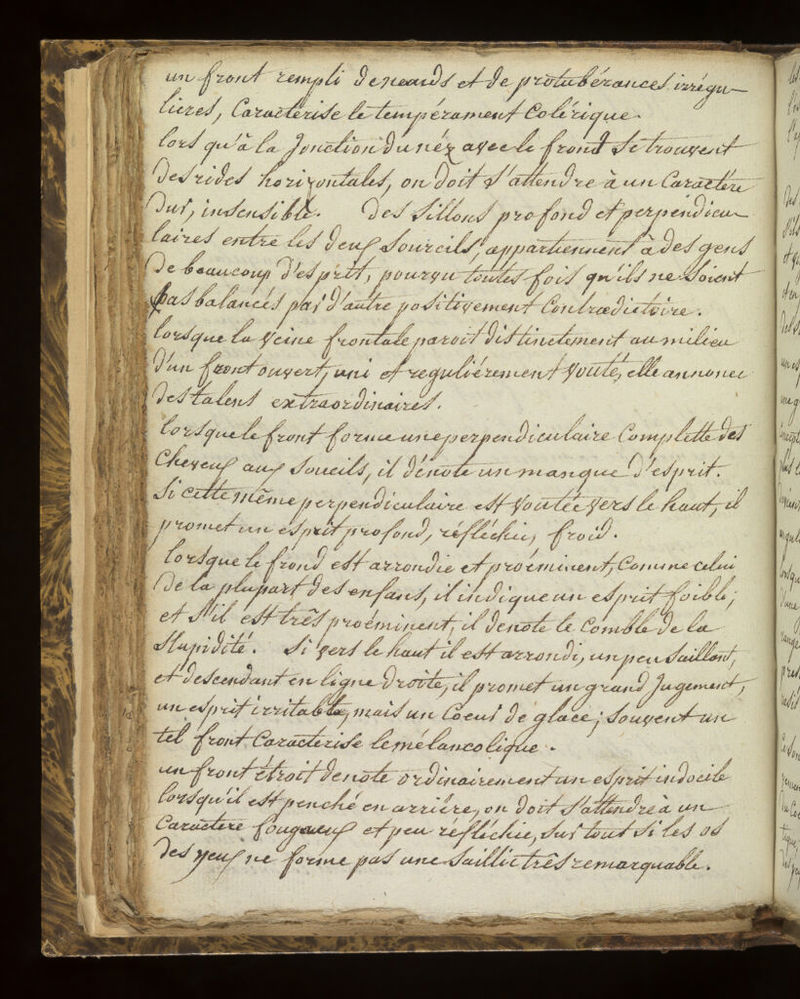 un front rempli de nœuds et de protubérances irrégu-
lieres, Caractérise le tempérament Colérique.
lors qu'à la Jonction du néz avec le front se trouvent
Des rides horizontales, on doit s'attendre à un Caractére
Dur, insensible. Des Sillons profond et perpendicu-
laires entre les deux Sourcils, appartiennent à des gens
De beaucoup d'esprit, pourvu toutes fois qu'ils ne soient
pas balancés par d'autre positivement Contradictoire.
lorsque la Veine frontale paroit distinctement au milieu
D'un front ouvert, uni et reguliérement Vouté, elle annonce
Des talens extraordinaires.
lorsque le front forme une perpendiculaire Complette des
Cheveux aux Soucils, il dénote un manque d'esprit.
Si cette même perpendiculaire est Voutée Vers le haut, il
promet un esprit profond, réfléchi, froid.
lorsque le front est arrondie et proéminent, Comme celui
De la plupart des enfans, il indique un esprit foible;
et s'il est très proéminent, il denote le Comble de la
Stupidité. Si vers le haut il est arrondi, un peu Saillant,
et descendant en ligne droite, il promet un grand Jugement,
un esprit irritable, mais un Coeur de glace; Souvent un
tel front Caracterise le mélancolique.
un front étroit denote ordinairement un esprit indocile
lorsqu'il est penché en arriére, on doit s'attendre à un
Caractere fougueux et peu réfléchie, Sur tout Si les os
Des yeux ne forme pas une Saillie très remarquable.